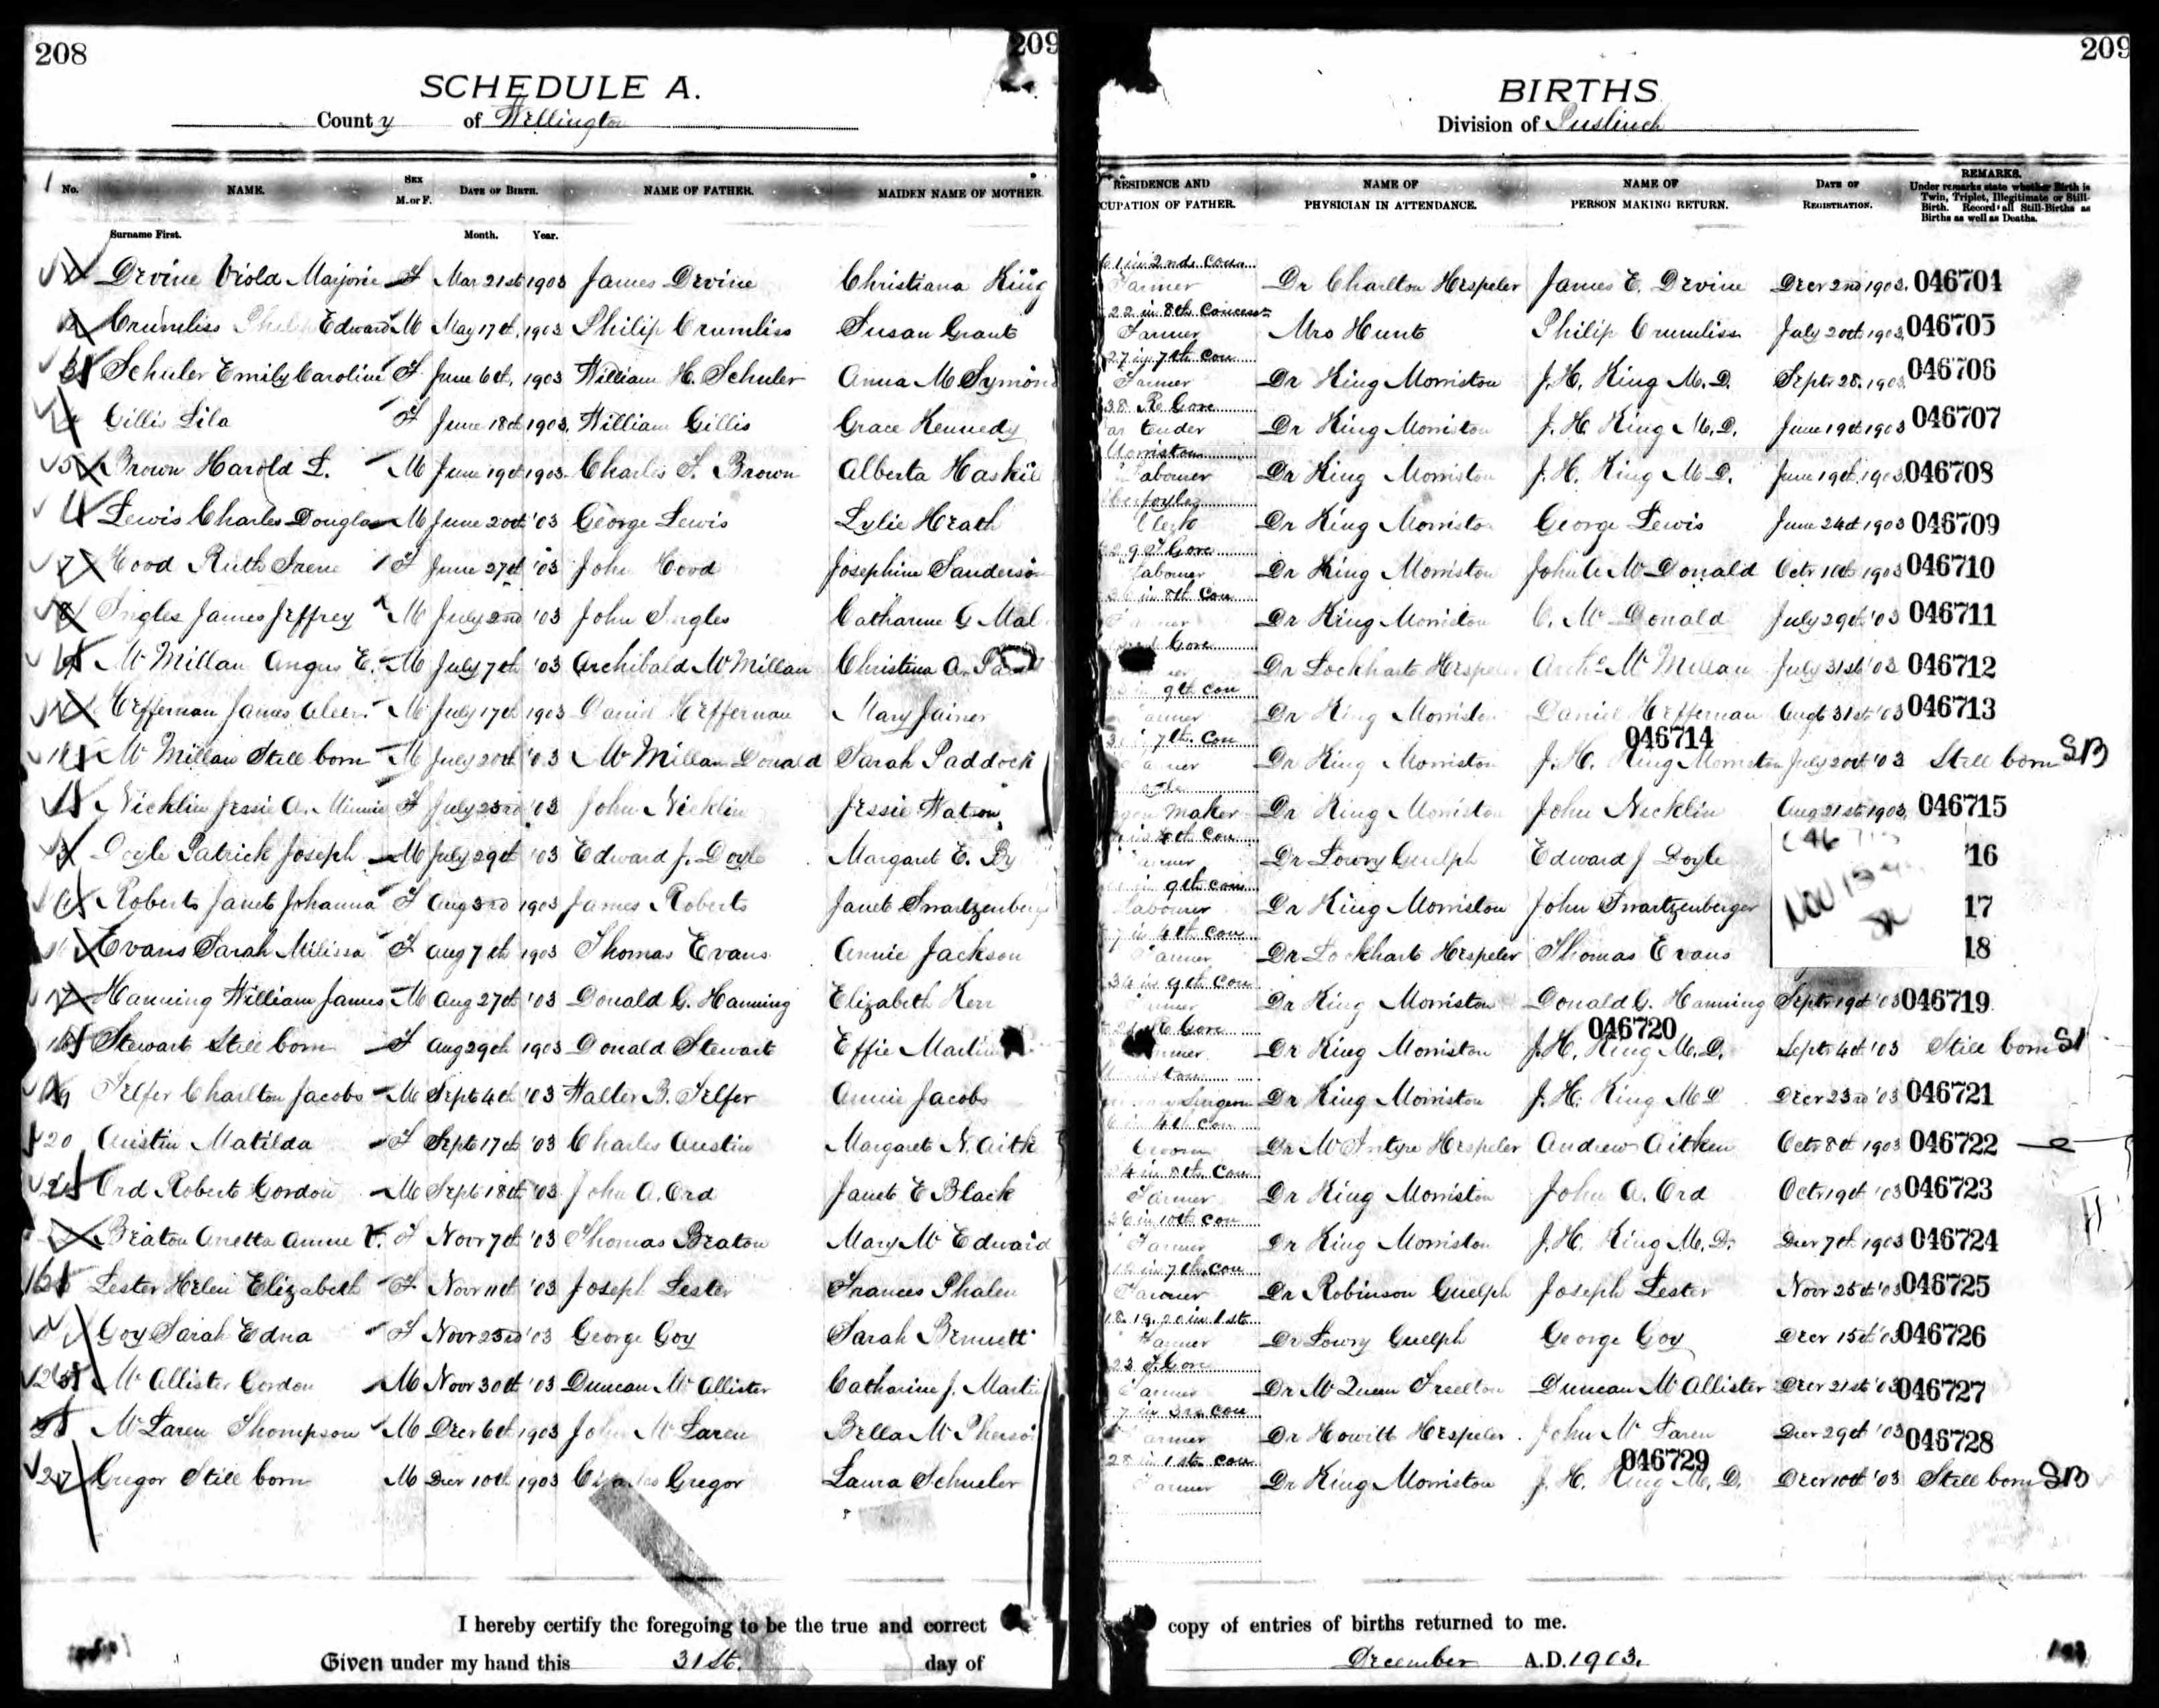 208
209
209
SCHEDULE A.
County of Wellington
BIRTHS
Division of Puslinch
No. NAME. SEX M. or F. DATE OF BIRTH. NAME OF FATHER. MAIDEN NAME OF MOTHER.
Surname First. Month. Year.
RESIDENCE AND
CUPATION OF FATHER. NAME OF PHYSICIAN IN ATTENDANCE. NAME OF PERSON MAKING RETURN. DATE OF REGISTRATION. REMARKS.
Under remarks state whether Birth is
Twin, Triplet, Illegitimate or Still-
Birth. Record all Still-Births as
Births as well as Deaths.
Devine Viola Marjorie F Mar 21st 1903 James Devine Christiana King in 2nd Con Farmer Dr Charlton Hespeler James E. Devine Decr 2nd 1903. 046704
Crumliss Edward M May 17th, 1903 Philip Crumliss Susan Grant 22 in 8th Concess Farmer Mrs Hunt Philip Crumliss July 20th 1903 046705
3 Schuler Emily Caroline F June 6th, 1903 William H. Schuler Anna M Symon 27 in 7th Con Farmer Dr King Morriston J. H. King M. D. Sept 28. 1903 046706
Gillis Lila F June 18th 1903. William Gillis Grace Kennedy 38 R Gore tender Dr King Morriston J. H. King M. D. June 19th 1903 046707
5 Brown Harold L. M June 19th 1903. Charles S. Brown Alberta Haski Morriston Labourer Dr King Morriston J. H. King M. D. June 19th, 1903 046708
Lewis Charles Douglas M June 20th '03 George Lewis Lylie Heath Clerk Dr King Morriston George Lewis June 24th 1903 046709
7 Hood Ruth Irene F June 27th '03 John Hood Josephine Sanderson Gore Labourer Dr King Morriston John A McDonald Octr 1903 046710
8 Ingles James Jeffrey M July 2nd '03 John Ingles Catharine G Mal in 8th Con Dr King Morriston C. McDonald July 29th '03 046711
9 McMillan Angus E. M July 7th '03 Archibald McMillan Christina A. Gore Dr Lockhart Hespeler Archd McMillan July 31st '03 046712
Heffernan James M July 17th 1903 Daniel Heffernan Mary Jainer 9th Con Farmer Dr King Morriston Daniel Heffernan Augt 31st '03 046713
11 McMillan Still born M July 20th '03 McMillan Donald Sarah Paddock 7th. Con Dr King Morriston J. H. King Morriston July 20th '03 046714 Still born SB
Nicklin Jessie A. Minnie F July 23rd '03 John Nicklin Jessie Watson Maker Dr King Morriston John Nicklin Aug 21st 1903, 046715
Doyle Patrick Joseph M July 29th '03 Edward J. Doyle Margaret E. By Con Dr Lowry Guelph Edward J Doyle '16
Roberts Janet Johanna F Aug 3rd 1903 James Roberts Janet Swartzenberg in 9th con Labourer Dr King Morriston John Swartzenberger 17
Evans Sarah Milissa F Aug 7th 1903 Thomas Evans Annie Jackson in 4th con Farmer Dr Lockhart Hespeler Thomas Evans 18
17 Hanning William James M Aug 27th '03 Donald G. Hanning Elizabeth Kerr in 9th Con Dr King Morriston Donald G. Hanning Septr 19th '03 046719
18 Stewart Still born F Aug 29th 1903 Donald Stewart Effie Martin Gore Dr King Morriston J. H. King M. D. Septr 4th '03 046720 Still born
19 Telfer Charlton Jacobs M Sept 4th '03 Walter B. Telfer Annie Jacobs Surgeon Dr King Morriston J. H. King M D Decr 23rd '03 046721
20 Austin Matilda F Sept 17th '03 Charles Austin Margaret N. Aitk in 4th con Groom Dr McIntyre Hespeler Andrew Aitken Octr 8th 1903 046722
21 Ord Robert Gordon M Sept 18th '03 John A. Ord Janet E Black 24 in 8th Con Farmer Dr King Morriston John A. Ord Octr 19th '03 046723
Beaton Anetta Annie F Novr 7th '03 Thomas Beaton Mary McEdward 26 in 10th con Farmer Dr King Morriston J. H. King M. D. Decr 7th 1903 046724
Lester Helen Elizabeth F Novr 11th '03 Joseph Lester Frances Phalen in 7th con Farmer Dr Robinson Guelph Joseph Lester Novr 25th '03 046725
Goy Sarah Edna F Novr 23rd '03 George Goy Sarah Bennett 18. 19. 20 in 1st Farmer Dr Lowry Guelph George Goy Decr 15th '03 046726
25 McAllister Gordon M Novr 30th '03 Duncan McAllister Catharine J. Martin 23 F. Gore Farmer Dr McQueen Freelton Duncan McAllister Decr 21st '03 046727
McLaren Thompson M Decr 6th 1903 John McLaren Bella McPherso 7 in 3rd con Farmer Dr Howitt Hespeler. John McLaren Decr 29th '03 046728
27 Gregor Still born M Decr 10th 1903 Charles Gregor Laura Schueler 28 in 1st con Farmer Dr King Morriston J. H. King M. D. Decr 10th '03 046729 Still born SB
I hereby certify the foregoing to be the true and correct copy of entries of births returned to me.
Given under my hand this 31st. day of December A.D. 1903.